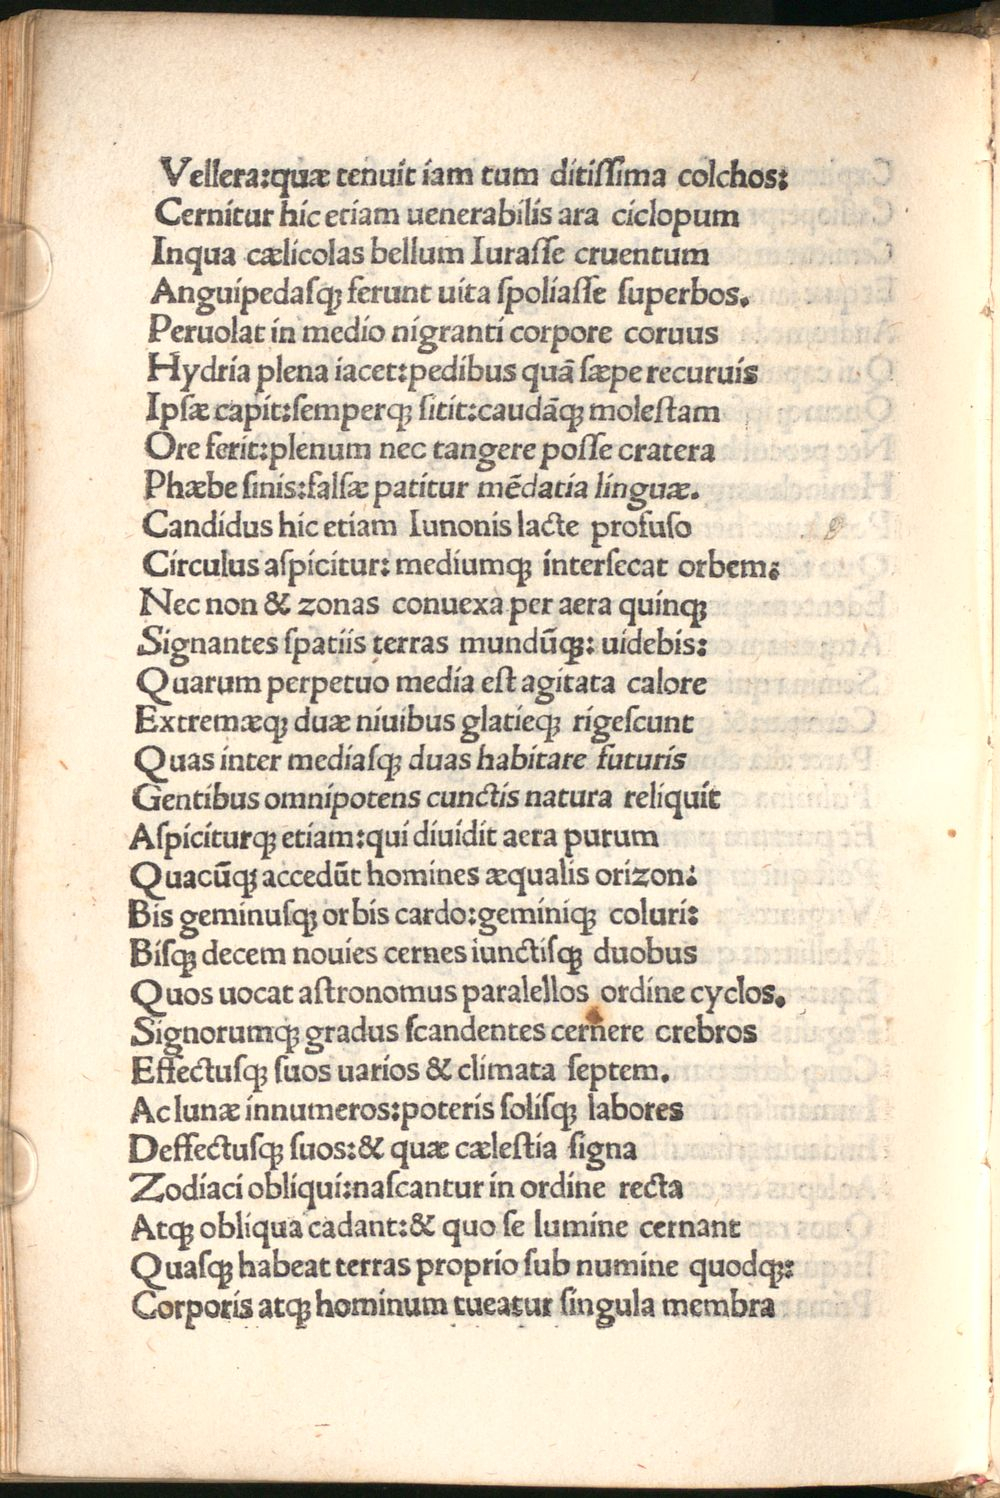 Vellera:quæ tenuit iam tum ditiſſima colchos:
Cernitur hic etiam uenerabilis ara ciclopum
Inqua cælicolas bellum Iuraſſe cruentum
Anguipedaſqꝫ ferunt uita ſpoliaſſe ſuperbos.
Peruolat in medio nigranti corpore coruus
Hydria plena iacet:pedibus quā ſæpe recuruis
Ipſæ capit:ſemperqꝫ ſitit:caudāqꝫ moleſtam
Ore ferit:plenum nec tangere poſſe cratera
Phæbe ſinis:falſæ patitur mēdatia linguæ.
Candidus hic etiam Iunonis lacte profuſo
Circulus aſpicitur: mediumqꝫ interſecat orbem:
Nec non & zonas conuexa per aera quinqꝫ
Signantes ſpatiis terras mundūqꝫ: uidebis:
Quarum perpetuo media eſt agitata calore
Extremæqꝫ duæ niuibus glatieqꝫ rigeſcunt
Quas inter mediaſqꝫ duas habitare futuris
Gentibus omnipotens cunctis natura reliquit
Aſpiciturqꝫ etiam:qui diuidit aera purum
Quacūqꝫ accedūt homines æqualis orizon:
Bis geminuſqꝫ orbis cardo:geminiqꝫ coluri:
Biſqꝫ decem nouies cernes iunctiſqꝫ duobus
Quos uocat aſtronomus paralellos ordine cyclos.
Signorumqꝫ gradus ſcandentes cernere crebros
Effectuſqꝫ ſuos uarios & climata ſeptem.
Ac lunæ innumeros:poteris ſoliſqꝫ labores
Deffectuſqꝫ ſuos:& quæ cæleſtia ſigna
Zodiaci obliqui:naſcantur in ordine recta
Atqꝫ obliqua cadant:& quo ſe lumine cernant
Quaſqꝫ habeat terras proprio ſub numine quodqꝫ:
Corporis atqꝫ hominum tueatur ſingula membra